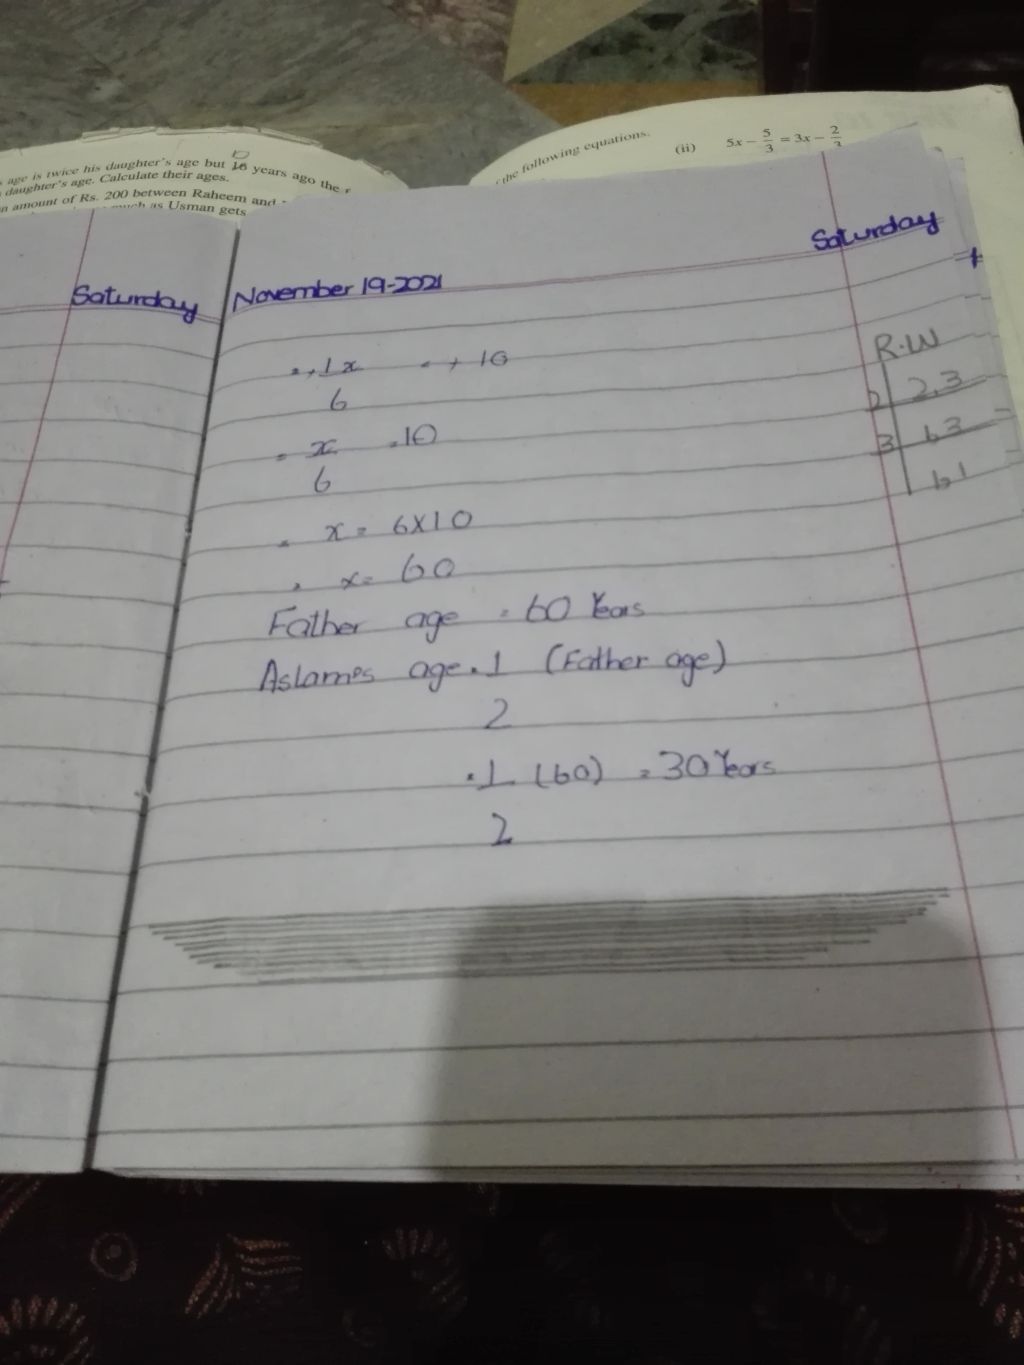 age is twice his daughter's age but 10 years ago the
daughter's age. Calculate their ages.
amount of Rs. 200 between Raheem and
much as Usman gets
the following equations.
(ii) 5x - 5/3 = 3x - 2/3
Saturday
Saturday
November 19-2021
1x + 10
6
x = 10
6
x = 6x10
x = 60
Father age = 60 Years
Aslam's age = 1 (Father age)
2
= 1 (60) = 30 Years
2
R.W
2 2,3
3 1,3
1,1